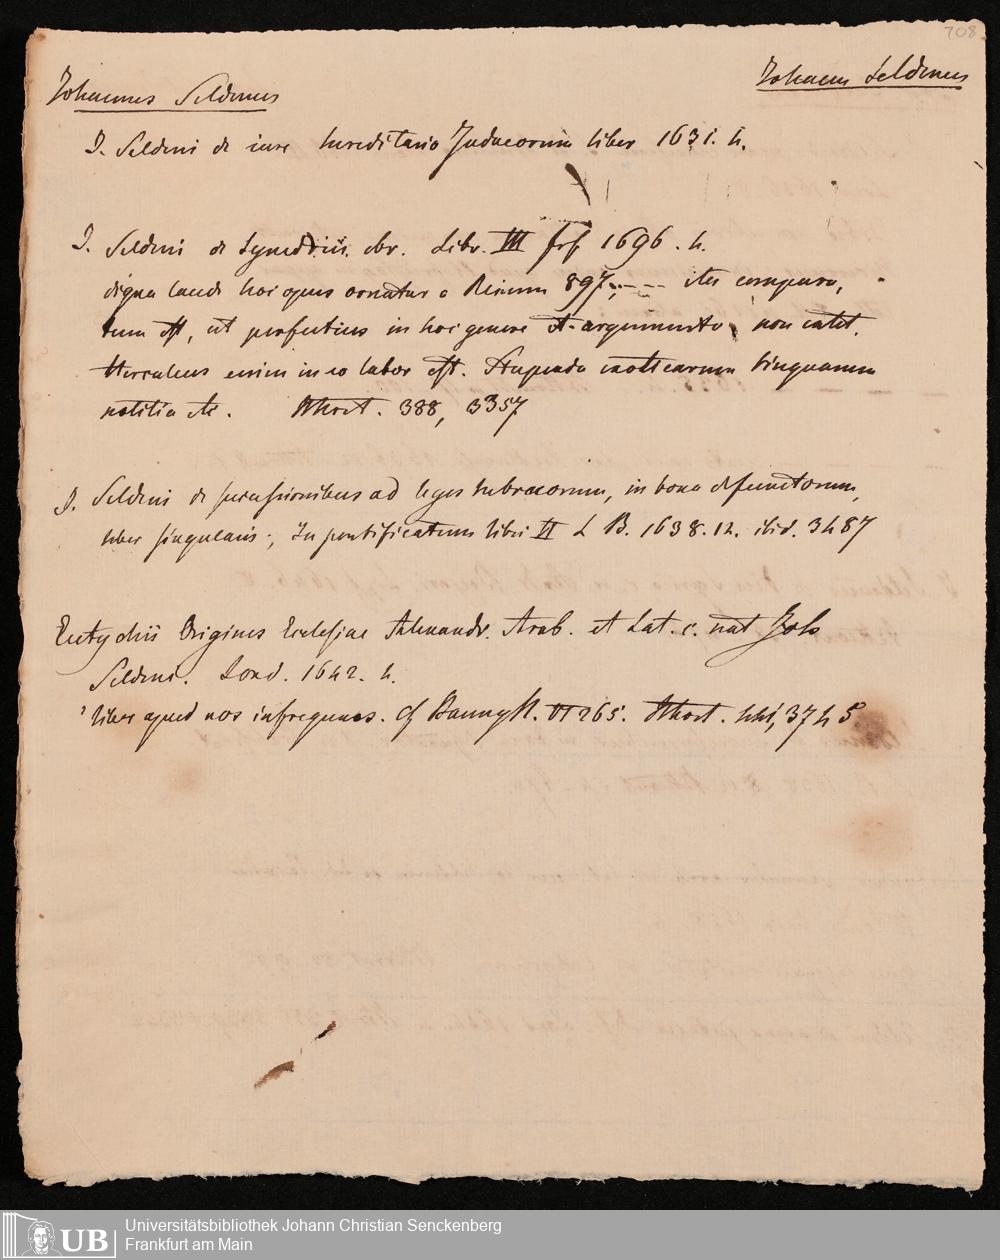 708
Johannes Seldenus
Johann Seldenus
J. Seldeni de iure hereditario Judaeorum liber 1631. 4.
J. Seldeni de Synedriis. ebr. Libr. III frf 1696. 4.
digna laude hoc opus ornatur a Reimm 897, --- ita comparatum est, ut perfectius in hoc genere et argumento non extet.
Herculeus enim in eo labor est. Stupenda exoticarum linguarum
notitia etc. Thort. 388, 3357
J. Seldeni de successionibus ad leges hebraeorum, in bona defunctorum,
liber singularis; In pontificatum libri II L B. 1638. 12. ibid. 3487
Eutychii Origines Ecclesiae Alexandr. Arab. et Lat. c. not Joh
Seldeni. Lond. 1642. 4.
liber apud nos infrequens. cf Baumgt. VI 265. Thort. 3745
Universitätsbibliothek Johann Christian Senckenberg
Frankfurt am Main
UB